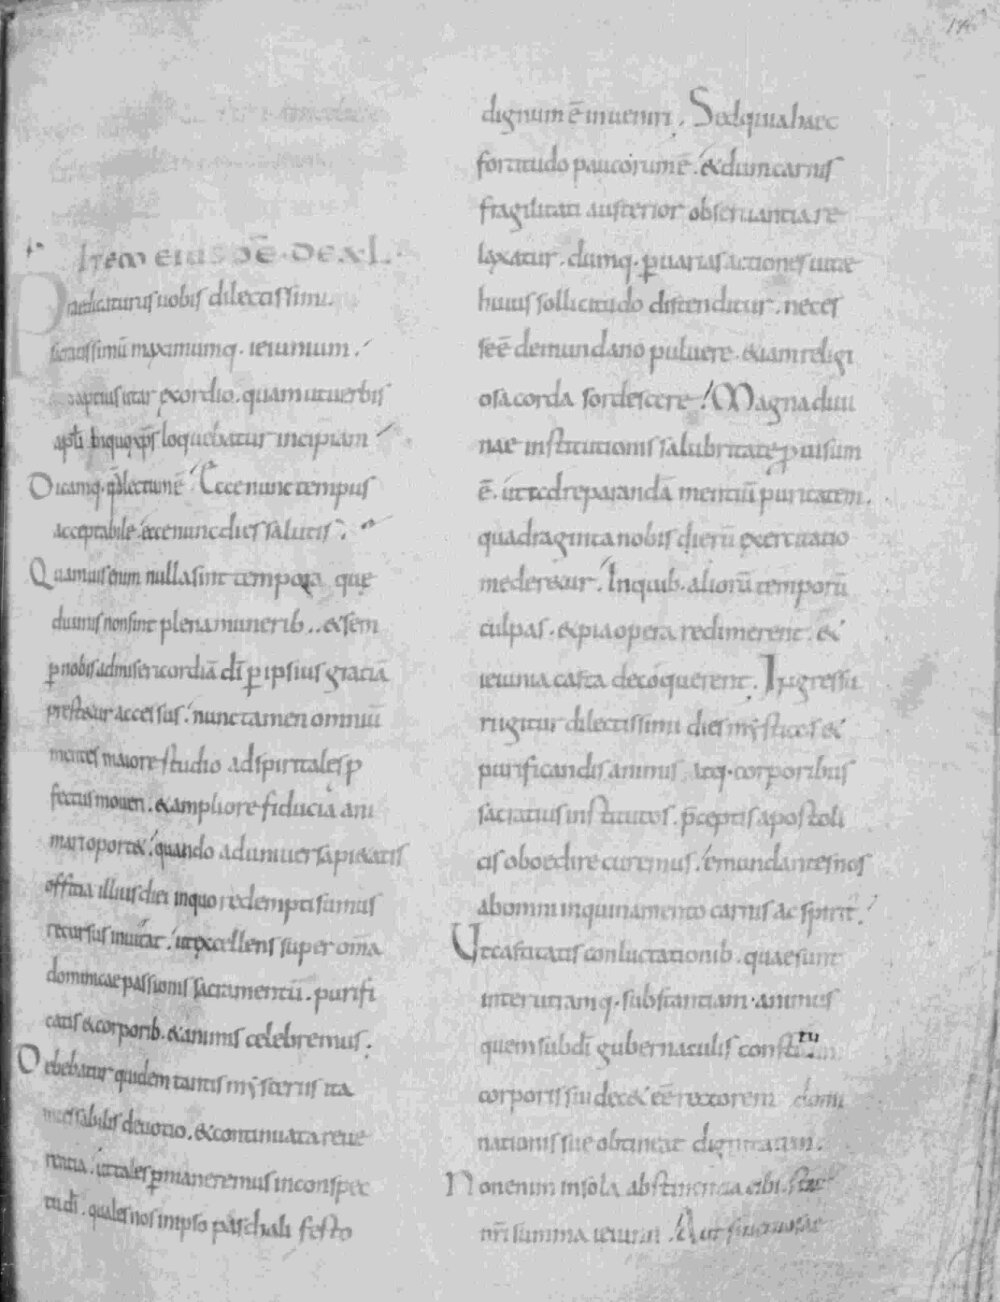 Item eius dē. De. XL.
Praedicaturus uobis dilectissimi.
sacratissimū maximumq. ieiunium.
aptius utar exordio. quam ut uerbis
apłi in quo xp̄s loquebatur incipiam
Dicamq. qđ lectum ē. Ecce nunc tempus
acceptabile. ecce nunc dies salutis.
Quamuis enim nulla sint tempora que
diuinis non sint plena munerib.. & sem
p nobis ad misericordiā dī p ipsius gratiā
prestetur accessus. nunc tamen omniū
mentes maiore studio ad spiritales p
fectus moueri. & ampliore fiducia ani
mari oportet. quando ad uniuersa pietatis
officia illius diei in quo redempti sumus
recursus inuitat. ut excellens super om̄a
dominicae passionis sacramentū. purifi
catis & corporib. & animis celebremus.
Debebatur quidem tantis mysteriis ita
incessabilis deuotio. & continuata reue
rentia. ut tales pmaneremus in conspec
tu dī. quales nos in ipso paschali festo
dignum ē inueniri. Sed quia haec
fortitudo paucorum ē. & dum carnis
fragilitati austerior obseruantia re
laxatur. dumq. p uarias actiones uitae
huius sollicitudo distenditur. neces
se ē de mundano puluere. etiam religi
osa corda sordescere. Magna diui
nae institutionis salubritate puisum
ē. ut ad reparandā mentiū puritatem.
quadraginta nobis dierū exercitatio
mederetur. In quib. aliorū temporū
culpas. & pia opera redimerent. &
ieiunia casta decoquerent. Ingressu
ri igitur dilectissimi dies mysticos &
purificandis animis atq. corporibus
sacratius institutos. p̄ceptis apostoli
cis oboedire curemus. emundantes nos
ab omni inquinamento carnis ac spirit.
Ut castigatis conluctationib. quae sunt
inter utramq. substantiam. animus
quem sub dī gubernaculis constitu
corporis sui decet ēē rectorem domi
nationis sue obtineat dignitatem.
Non enim in sola abstinentia cibi. stat
nr̄i summa ieiunii. Aut